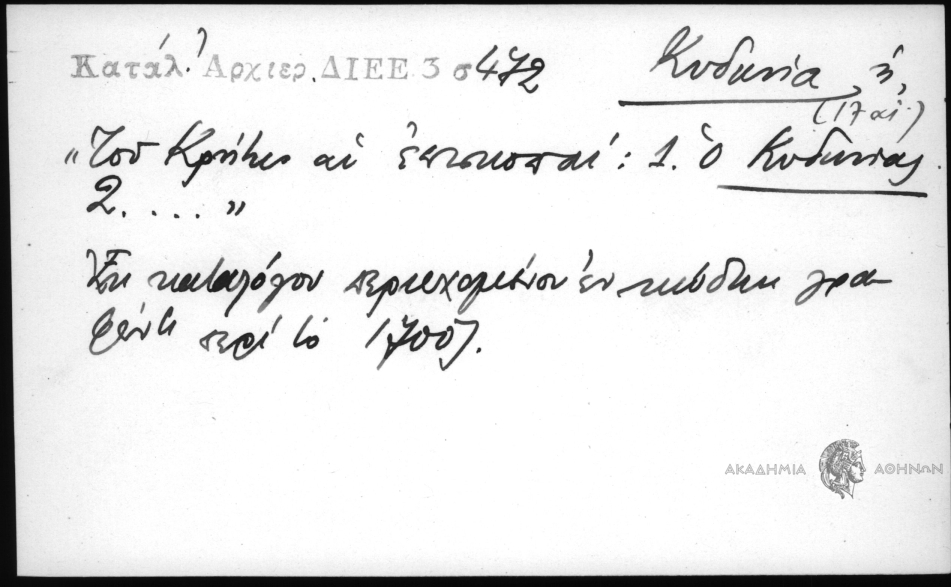 Κατάλ. Ἀρχιερ. ΔΙΕΕ 3 σ 472 Κυδωνία, ἡ,
(17 αἰ.)
"Τοῦ Κρήτης αἱ ἐπισκοπαί: 1. ὁ Κυδωνίας.
2. . . . . "
Ἐκ καταλόγου περιεχομένου ἐν κώδικι γρα-
φέντι περὶ τὸ 1700).
ΑΚΑΔΗΜΙΑ ΑΘΗΝΩΝ